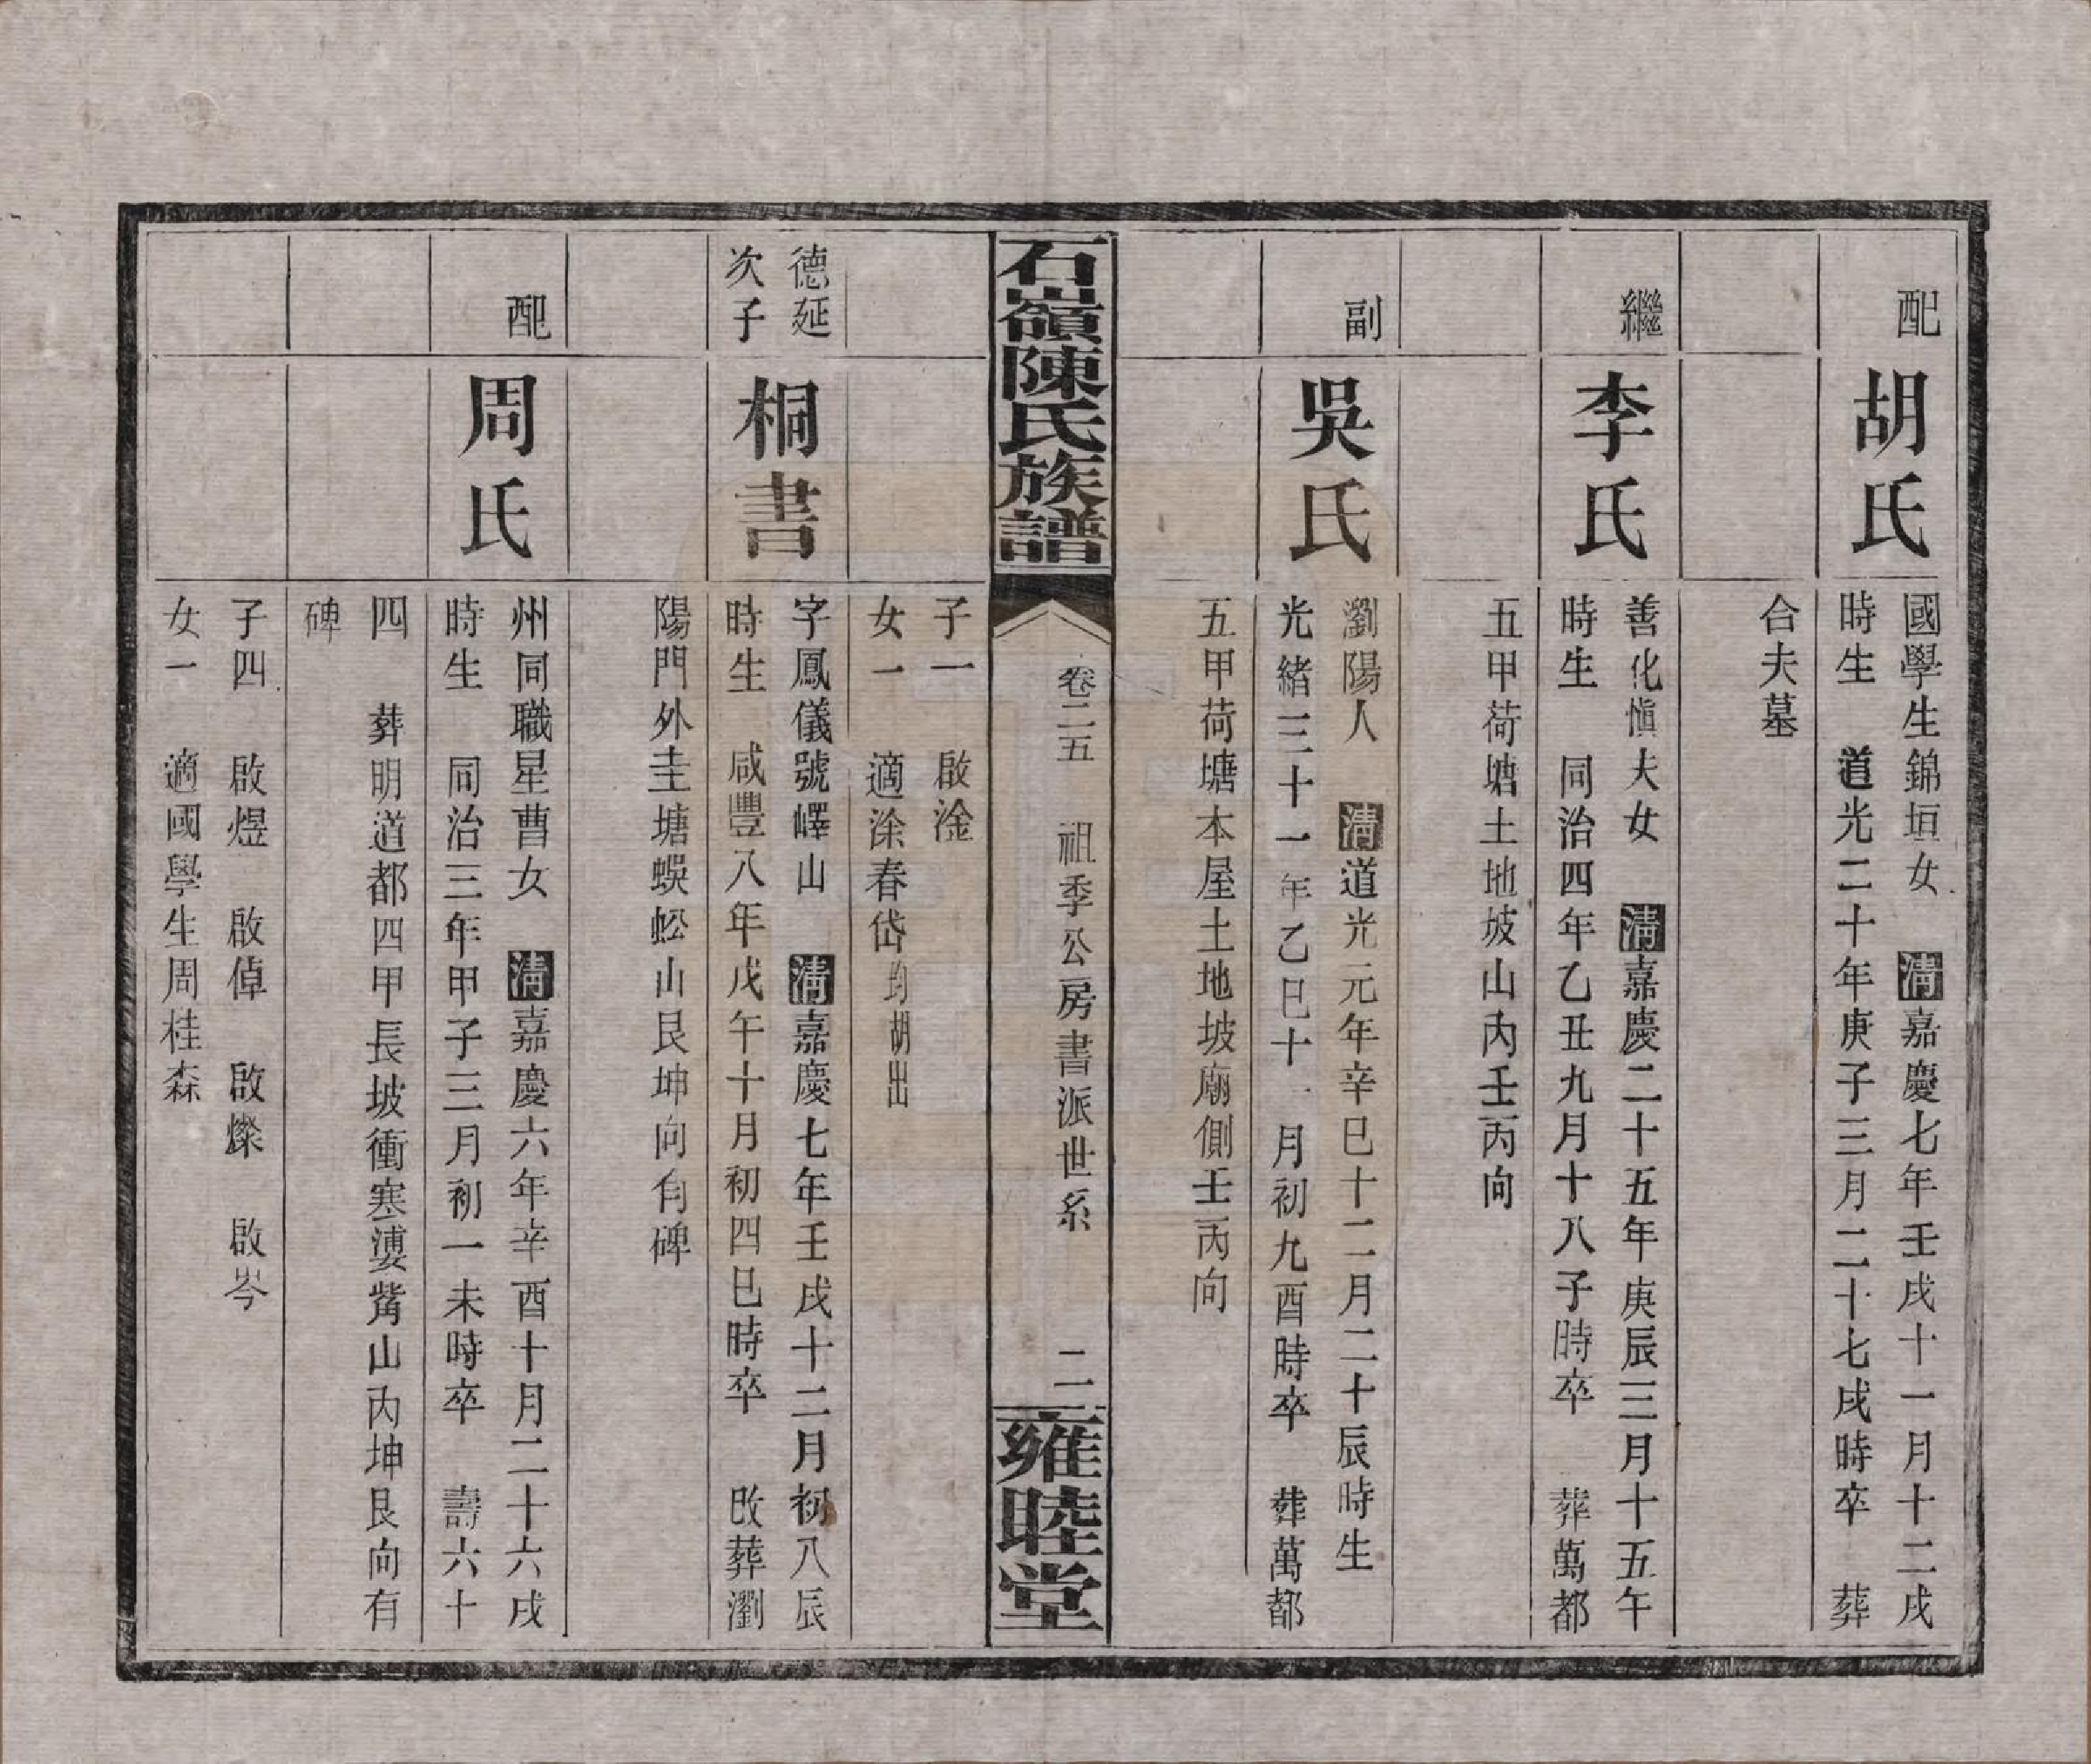 配
胡氏
國學生錦垣女 清嘉慶七年壬戌十一月十二戌
時生 道光二十年庚子三月二十七戌時卒 葬
合夫墓
繼
李氏
善化愼夫女 清嘉慶二十五年庚辰三月十五午
時生 同治四年乙丑九月十八子時卒 葬萬都
五甲荷塘土地坡山內壬丙向
副
吳氏
瀏陽人 清道光元年辛巳十二月二十辰時生
光緒三十一年乙巳十一月初九酉時卒 葬萬都
五甲荷塘本屋土地坡廟側壬丙向
石嶺陳氏族譜
卷二五 祖季公房書派世系 二
雍睦堂
子一 啟淦
女一 適涂春岱均胡出
德延
次子
桐書
字鳳儀號嶧山 清嘉慶七年壬戌十二月初八辰
時生 咸豐八年戊午十月初四巳時卒 改葬瀏
陽門外圭塘蜈蚣山艮坤向有碑
配
周氏
州同職星曹女 清嘉慶六年辛酉十月二十六戌
時生 同治三年甲子三月初一未時卒 壽六十
四 葬明道都四甲長坡衝寒婆山內坤艮向有
碑
子四 啟煜 啟倬 啟燦 啟岑
女一 適國學生周桂森